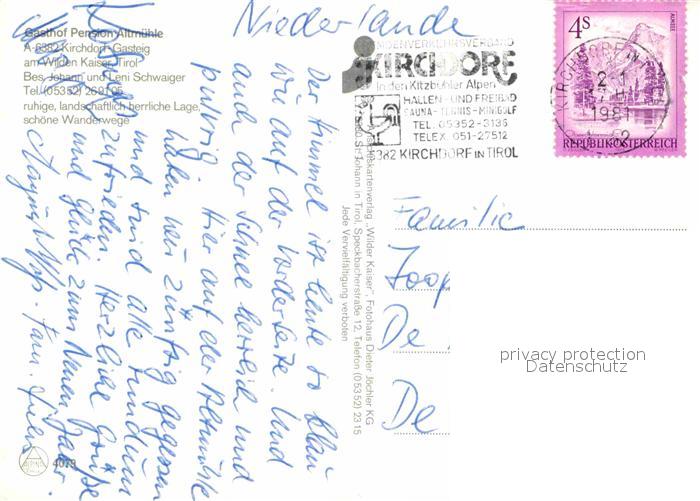 Niederlande
Gasthof Pension Altmühle
A-6382 Kirchdorf-Gasteig
am Wilden Kaiser, Tirol
Bes. Johann und Leni Schwaiger
Tel. (05352) 269105
ruhige, landschaftlich herrliche Lage,
schöne Wanderwege
Der Himmel ist heute so blau
wie auf der Vorderseite. Und
auch der Schnee herrlich und
pulvrig. Hier auf der Altmühle
haben wir zünftig gegessen
und sind alle rundum
zufrieden. Herzliche Grüße
und Glück zum Neuen Jahr.
Fam.
ALPINA
4079
Ansichtskartenverlag „Wilder Kaiser", Fotohaus Dieter Jöchler KG
St. Johann in Tirol, Speckbacherstraße 12, Telefon (05352) 2315
Jede Vervielfältigung verboten
FREMDENVERKEHRSVERBAND
KIRCHDORF
in den Kitzbühler Alpen
HALLEN- UND FREIBAD
SAUNA-TENNIS-MINIGOLF
TEL. 05352-3136
TELEX 051-27512
6382 KIRCHDORF IN TIROL
4S
ALMSEE
KIRCHDORF IN
2.-1.
1981
REPUBLIK ÖSTERREICH
Familie
Joop
De
De
privacy protection
Datenschutz